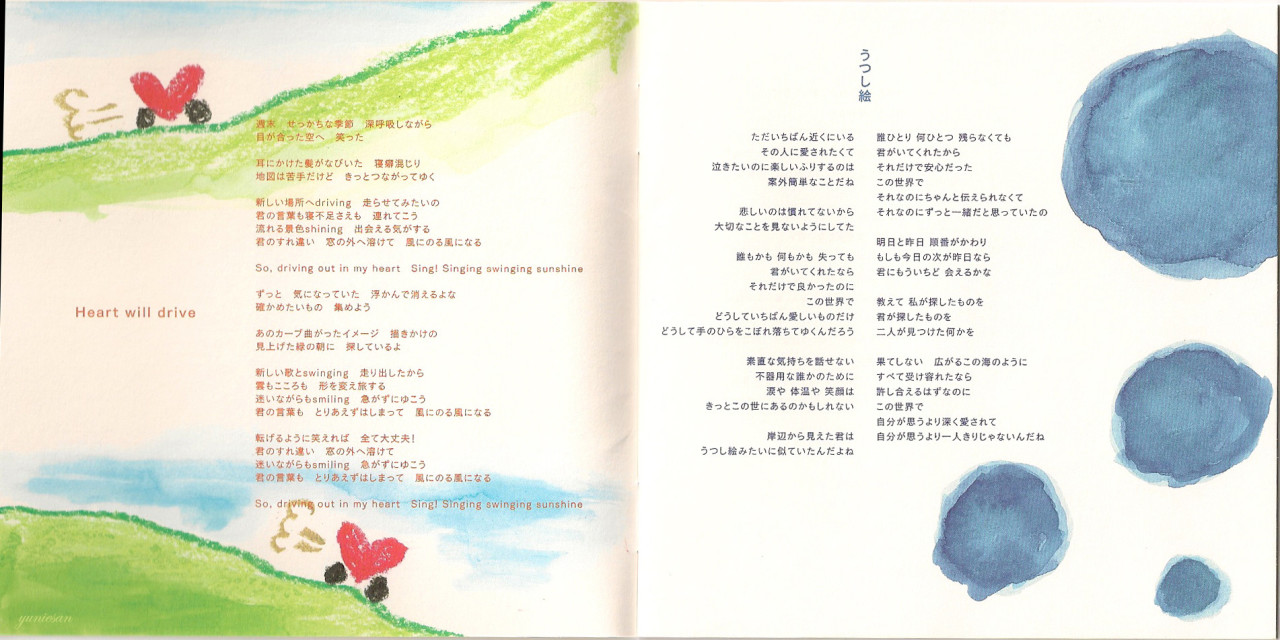 Heart will drive
週末　せっかちな季節　深呼吸しながら
目が合った空へ　笑った
耳にかけた髪がなびいた　寝癖混じり
地図は苦手だけど　きっとつながってゆく
新しい場所へdriving　走らせてみたいの
君の言葉も寝不足さえも　連れてこう
流れる景色shining　出会える気がする
君のすれ違い　窓の外へ溶けて　風にのる風になる
So, driving out in my heart　Sing! Singing swinging sunshine
ずっと　気になっていた　浮かんで消えるよな
確かめたいもの　集めよう
あのカーブ曲がったイメージ　描きかけの
見上げた緑の朝に　探しているよ
新しい歌とswinging　走り出したから
雲もこころも　形を変え旅する
迷いながらもsmiling　急がずにゆこう
君の言葉も　とりあえずはしまって　風にのる風になる
転げるように笑えれば　全て大丈夫!
君のすれ違い　窓の外へ溶けて
迷いながらもsmiling　急がずにゆこう
君の言葉も　とりあえずはしまって　風にのる風になる
So, driving out in my heart　Sing! Singing swinging sunshine
yuniesan
うつし絵
ただいちばん近くにいる
その人に愛されたくて
泣きたいのに楽しいふりするのは
案外簡単なことだね
悲しいのは慣れてないから
大切なことを見ないようにしてた
誰もかも 何もかも 失っても
君がいてくれたなら
それだけで良かったのに
この世界で
どうしていちばん愛しいものだけ
どうして手のひらをこぼれ落ちてゆくんだろう
素直な気持ちを話せない
不器用な誰かのために
涙や 体温や 笑顔は
きっとこの世にあるのかもしれない
岸辺から見えた君は
うつし絵みたいに似ていたんだよね
誰ひとり 何ひとつ 残らなくても
君がいてくれたから
それだけで安心だった
この世界で
それなのにちゃんと伝えられなくて
それなのにずっと一緒だと思っていたの
明日と昨日 順番がかわり
もしも今日の次が昨日なら
君にもういちど 会えるかな
教えて 私が探したものを
君が探したものを
二人が見つけた何かを
果てしない　広がるこの海のように
すべて受け容れたなら
許し合えるはずなのに
この世界で
自分が思うより深く愛されて
自分が思うより一人きりじゃないんだね